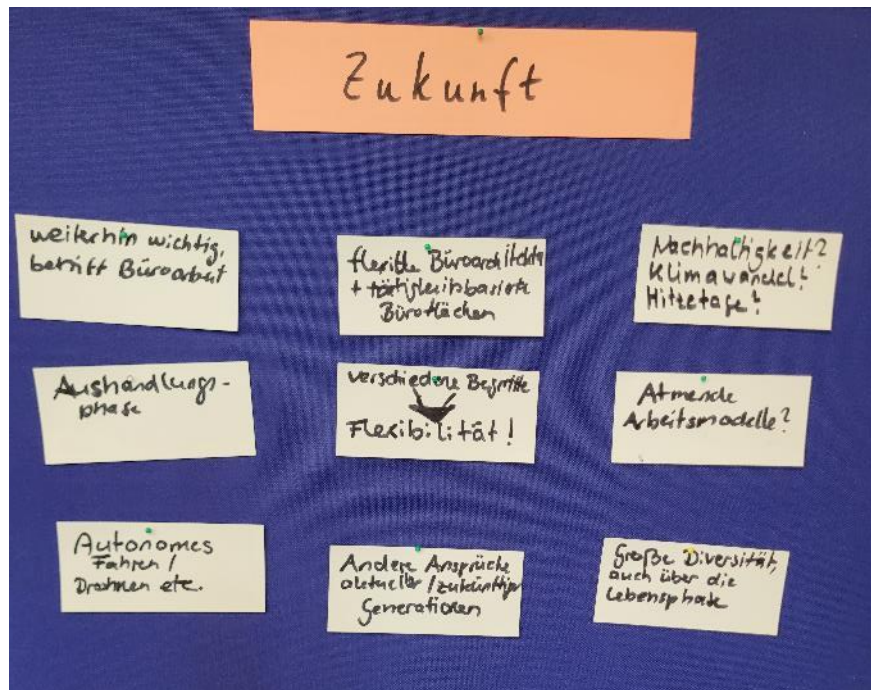 Zukunft
weiterhin wichtig,
betrifft Büroarbeit
flexible Büroarchitektur
+ tätigkeitsbasierte
Büroflächen
Nachhaltigkeit?
Klimawandel?
Hitzetage?
Aushandlungs-
phase
verschiedene Begriffe
Flexibilität!
Atmende
Arbeitsmodelle?
Autonomes
Fahren /
Drohnen etc.
Andere Ansprüche
aktueller / zukünftiger
Generationen
Große Diversität,
auch über die
Lebensphase